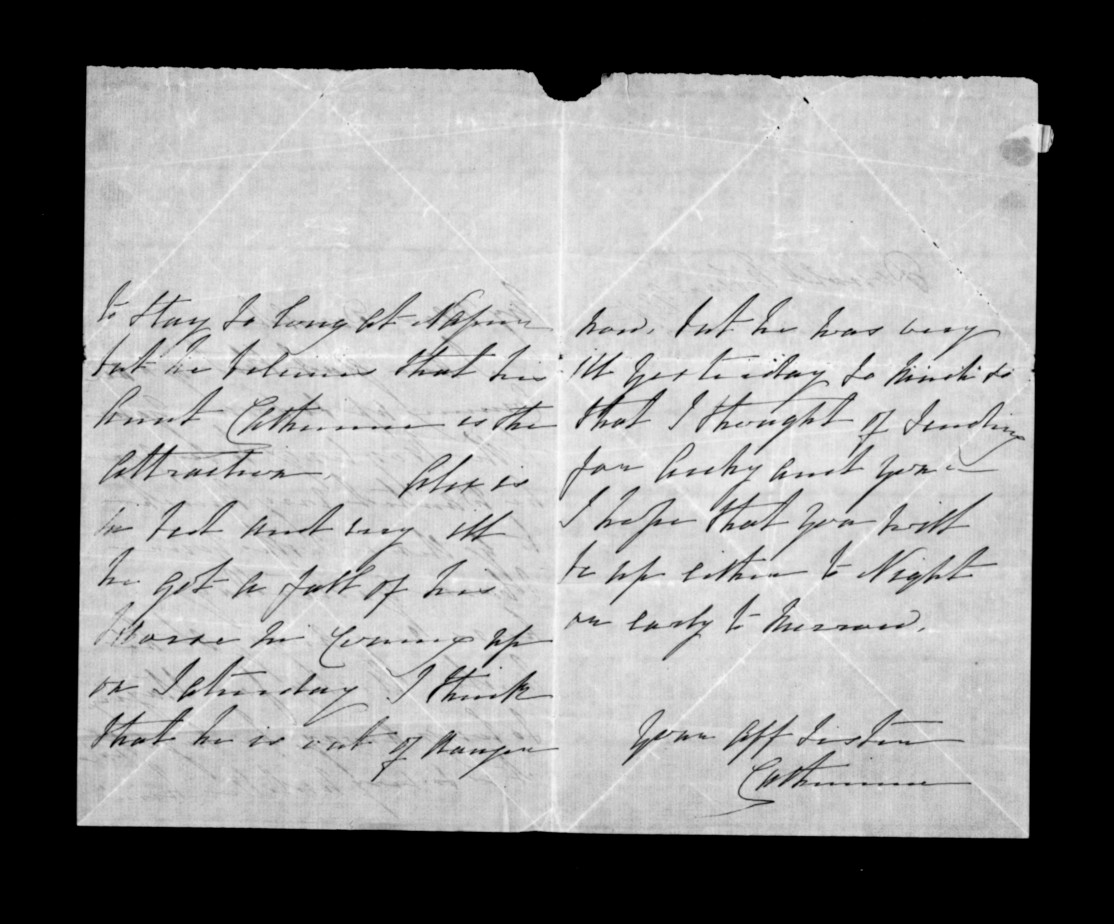 to stay so long at Napier
but we believe that his
Aunt Catherine is the
attraction. Alex is
in bed and very ill
he got a fall of his
Horse in coming up
on Saturday I think
that he is out of danger
now. but he was very
ill yesterday so much so
that I thought of sending
for Archy and you
I hope that you will
be up either to Night
or early to morrow.
Your Aff Sister
Catherine